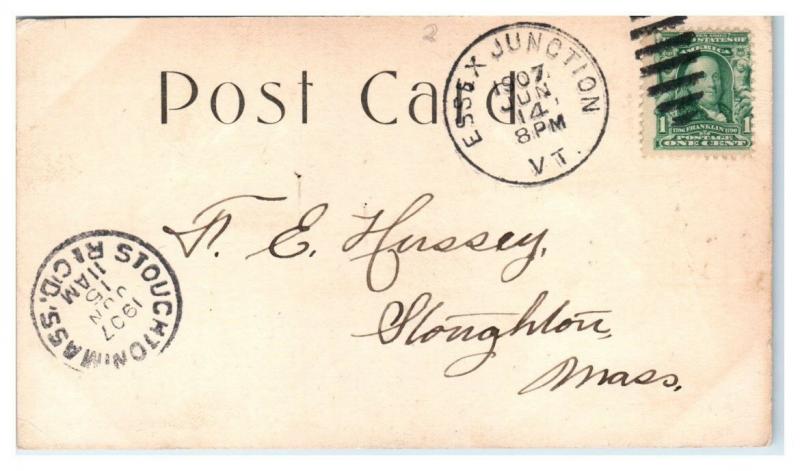 2
Post Card
ESSEX JUNCTION
1907.
JUN
14
8PM
VT.
UNITED STATES OF
AMERICA
1 1706 FRANKLIN 1790 1
POSTAGE
ONE CENT
F. E. Hussey,
Stoughton,
Mass.
STOUGHTON, MASS.
REC'D.
11AM
JUN
15
1907